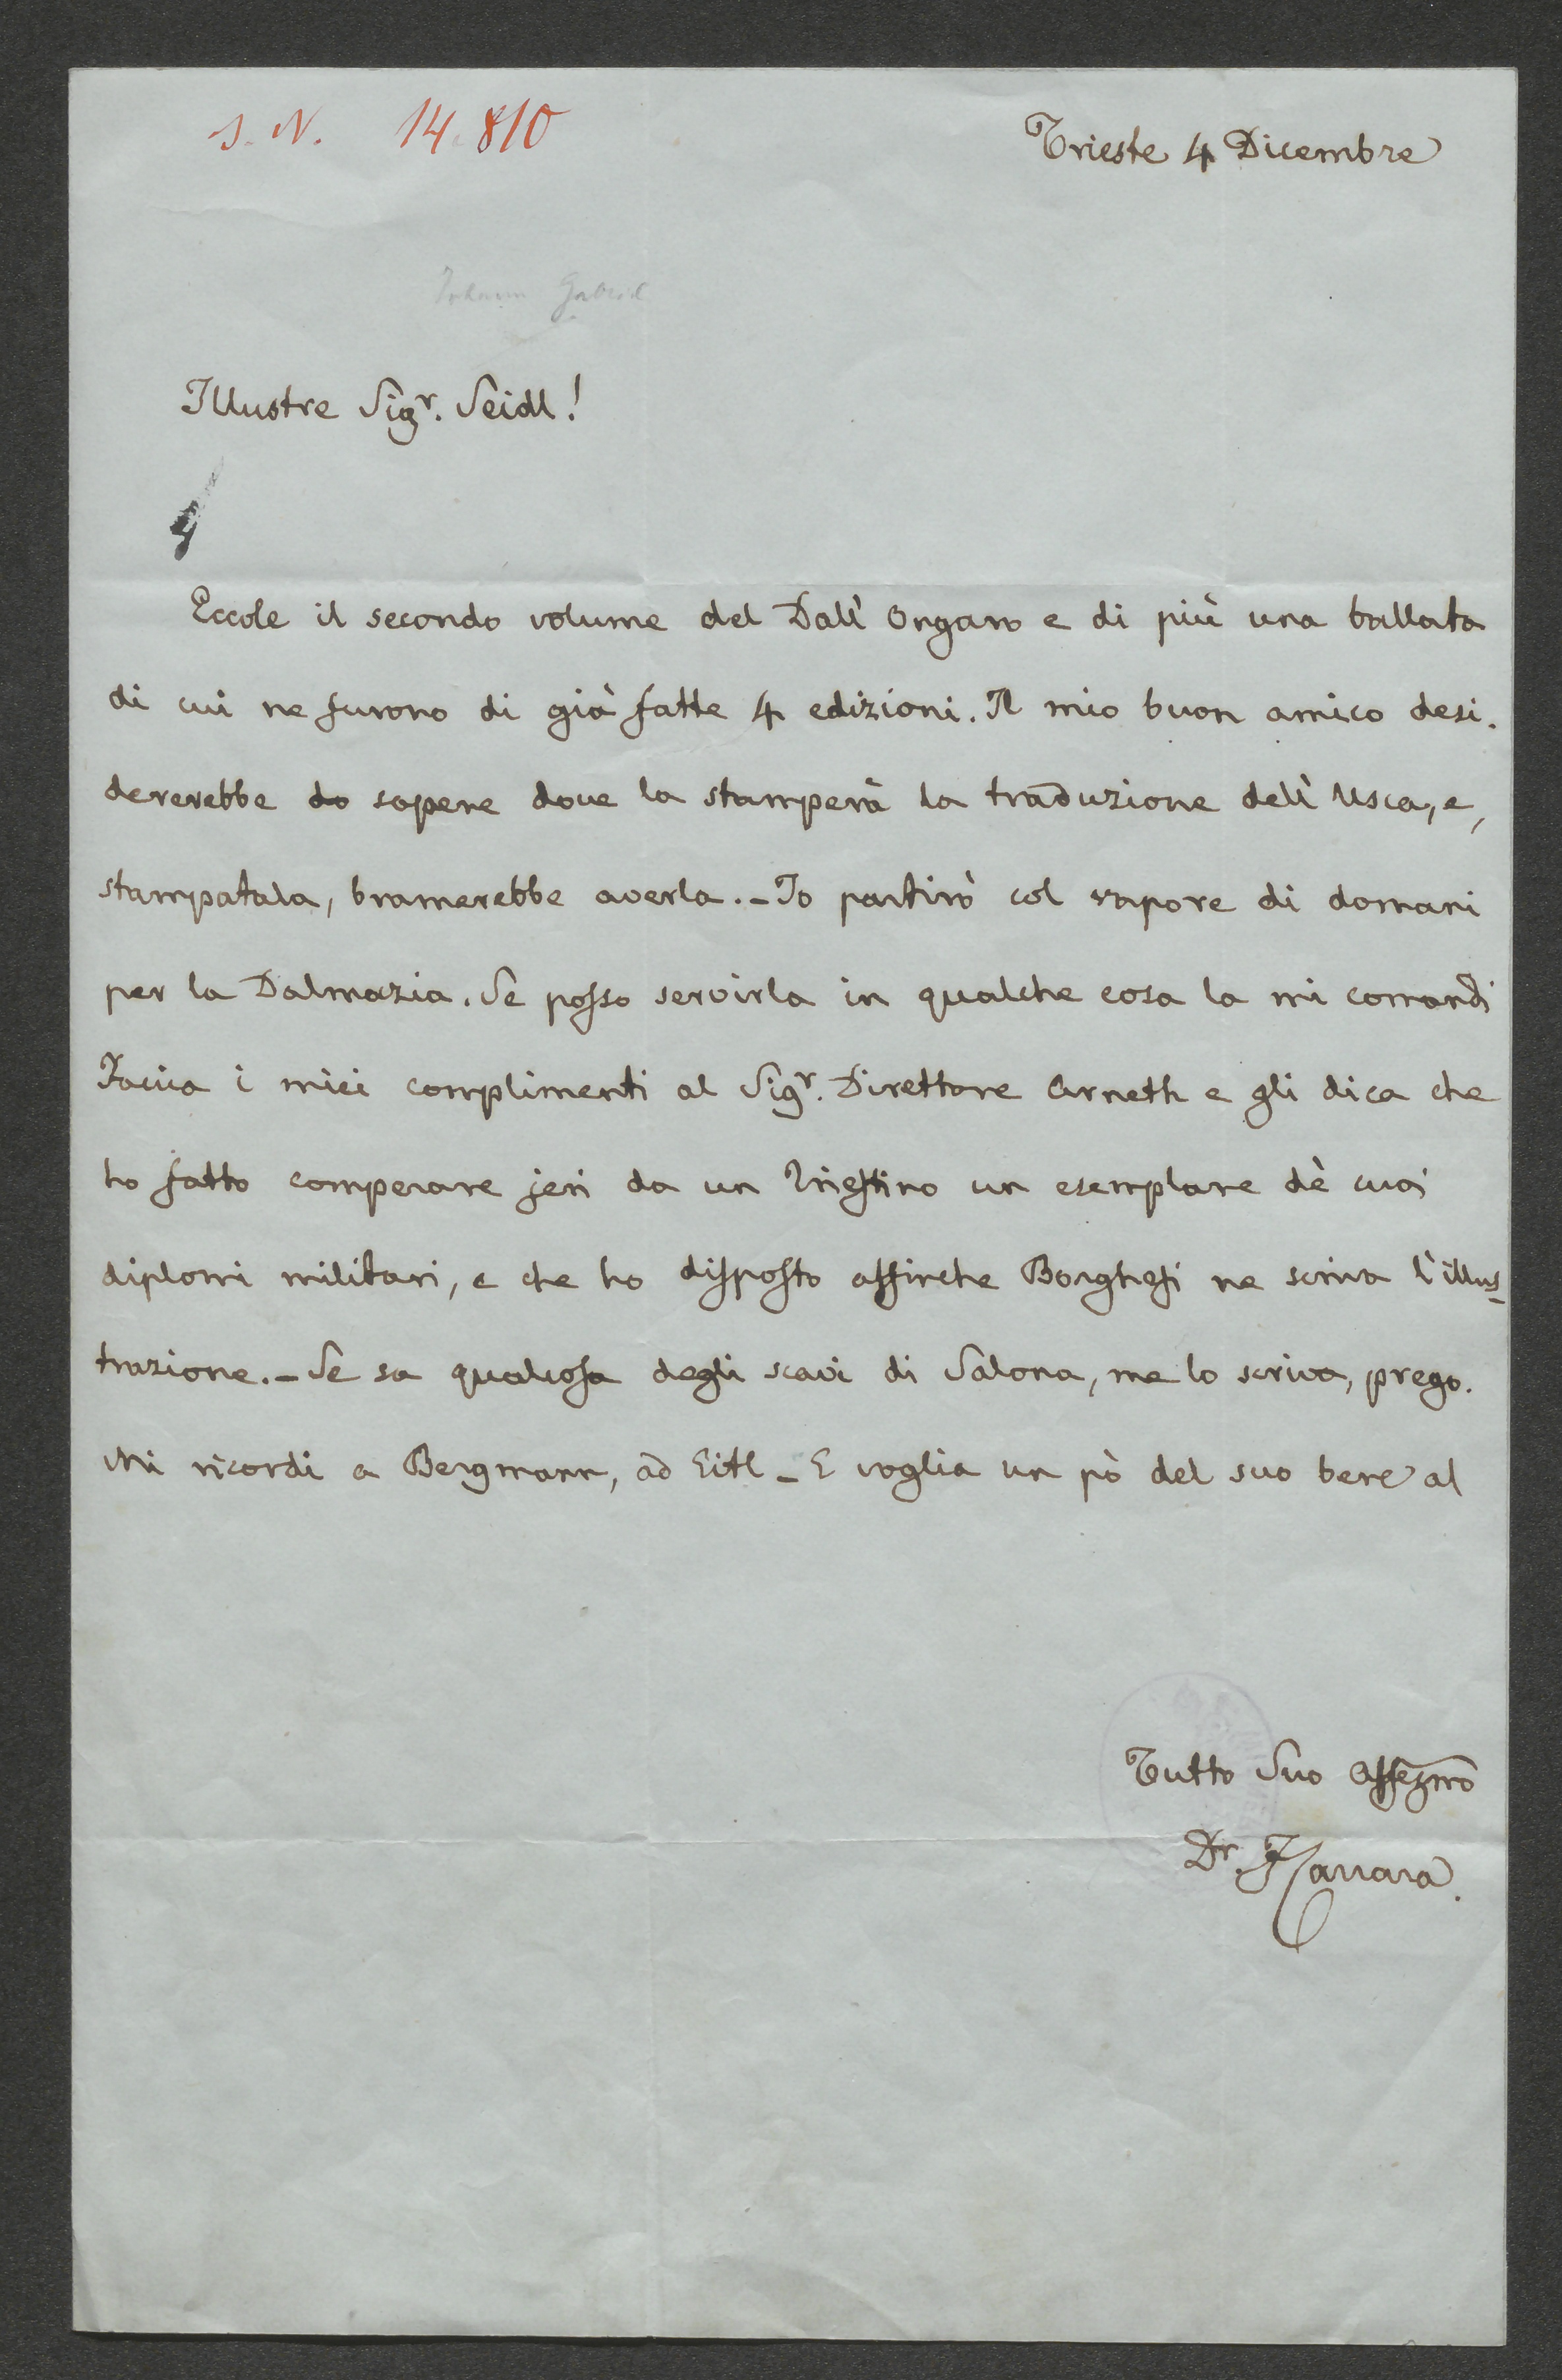 J. N. 14.810
Trieste 4 Dicembre
Johann Gabriel
Illustre Sigr. Seidl!
Eccole il secondo volume del Dall' Ongaro e di più una ballata
di cui ne furono di già fatte 4 edizioni. Il mio buon amico desi-
dererebbe do sapere dove la stamperà la traduzione dell' Usca, e,
stampatala, bramerebbe averla. - Io partirò col vapore di domani
per la Dalmazia. Se posso servirla in qualche cosa la mi comandi
Faccia i miei complimenti al Sigr. Direttore Arneth e gli dica che
ho fatto comperare jeri da un Triestino un esemplare dè suoi
diplomi militari, e che ho disposto affinche Borghesi ne scriva l'illus-
trazione. - Se sa qualcosa degli scavi di Salona, me lo scriva, prego.
Mi ricordi a Bergmann, ad Eitl - E voglia un pò del suo bene al
Tutto Suo Affezmo
Dr. F Carrara.